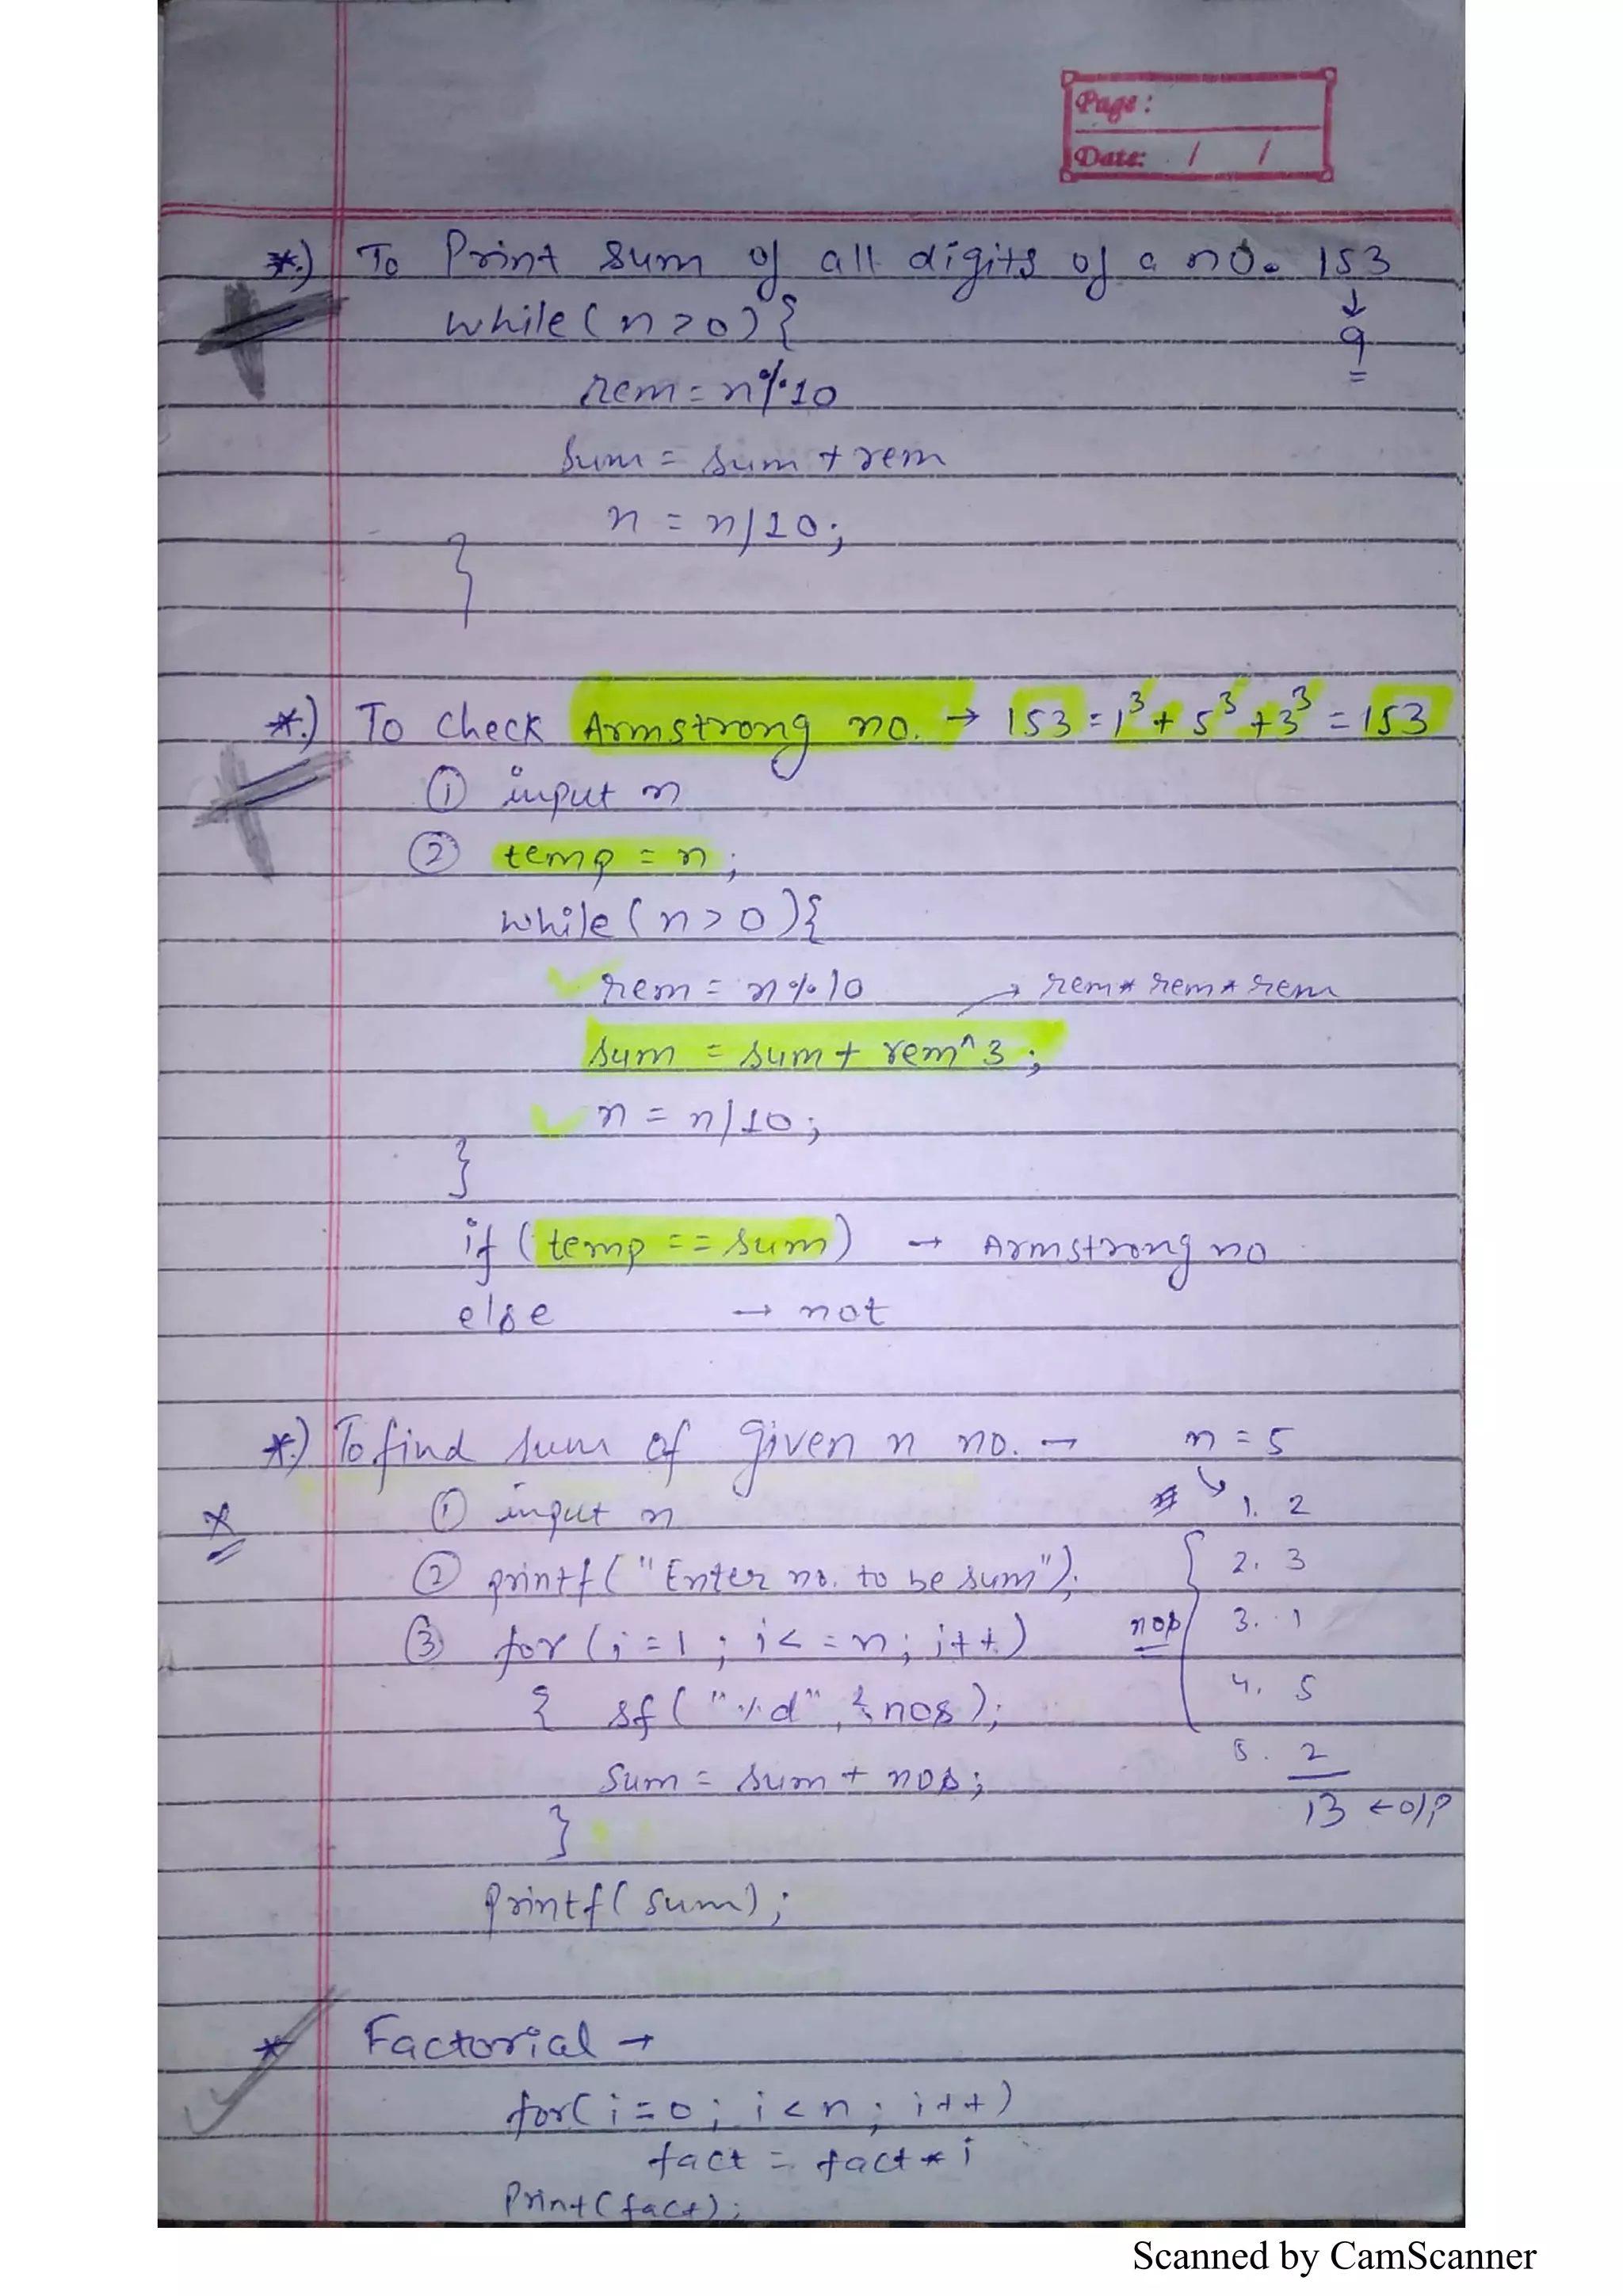 Page:
Date: / /
*.) To Print sum of all digits of a no. 153
↓
while(n>0){
9
rem=n%10
sum = sum + rem
n = n/10;
}
*.) To check Armstrong no. → 153 = 1³ + 5³ + 3³ = 153
① input n
② temp = n;
while(n>0){
rem = n%10 → rem*rem*rem
sum = sum + rem^3;
n = n/10;
}
if (temp == sum) → Armstrong no
else → not
*.) To find sum of given n no. → n = 5
① input n 1. 2
② printf("Enter no. to be sum"); 2. 3
③ for(i=1; i<=n; i++) nos 3. 1
{ sf("%d", &nos); 4. 5
sum = sum + nos; 5. 2
} 13 ← o/p
printf(sum);
* Factorial →
for(i=0; i<n; i++)
fact = fact * i
Print(fact);
Scanned by CamScanner